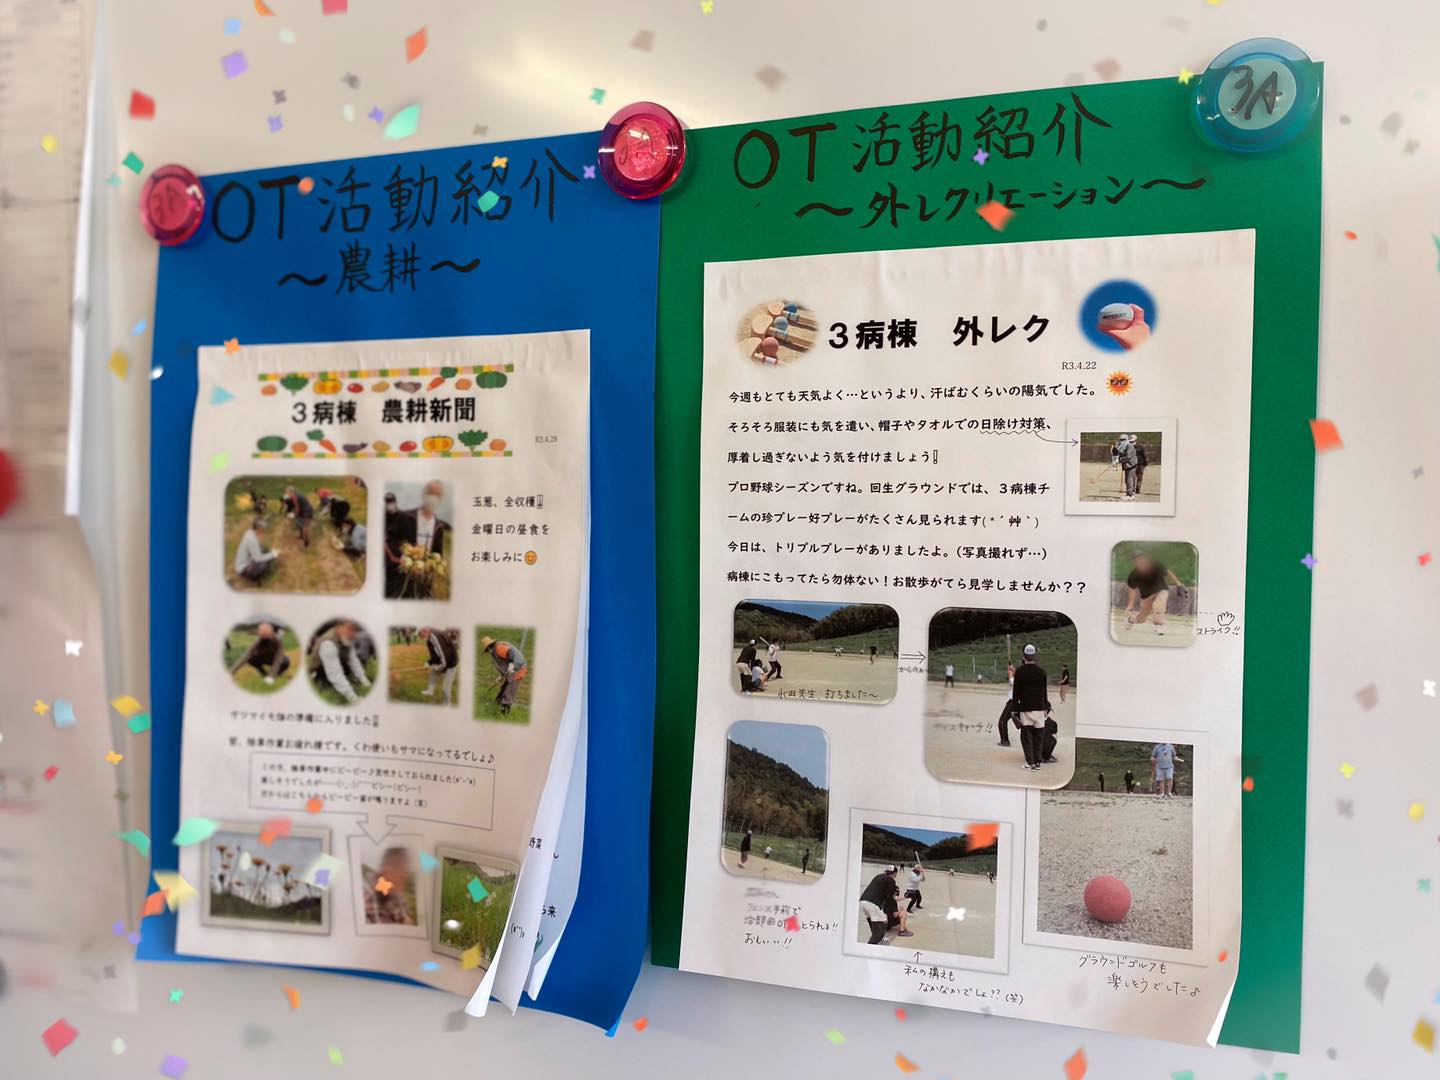 OT活動紹介
～農耕～
3病棟　農耕新聞
R3.4.28
玉葱、全収穫‼
金曜日の昼食を
お楽しみに😊
サツマイモ畑の準備に入りました‼
皆、袖果作業お疲れ様です。くわ使いもサマになってるでしょ♪
野菜
OT活動紹介
～外レクリエーション～
3A
3病棟　外レク
R3.4.22
今週もとても天気よく…というより、汗ばむくらいの陽気でした。
そろそろ服装にも気を遣い、帽子やタオルでの日除け対策、
厚着し過ぎないよう気を付けましょう‼
プロ野球シーズンですね。回生グラウンドでは、3病棟チ
ームの珍プレー好プレーがたくさん見られます(*´艸｀)
今日は、トリプルプレーがありましたよ。(写真撮れず…)
病棟にこもってたら勿体ない！お散歩がてら見学しませんか？？
ストライク!!
永田先生、打ちました～
からの
キャッチ!!
フェンス手前で
とられる!!
おしい…!!
私の構えも
なかなかでしょ??(笑)
グラウンドゴルフも
楽しそうでした♪